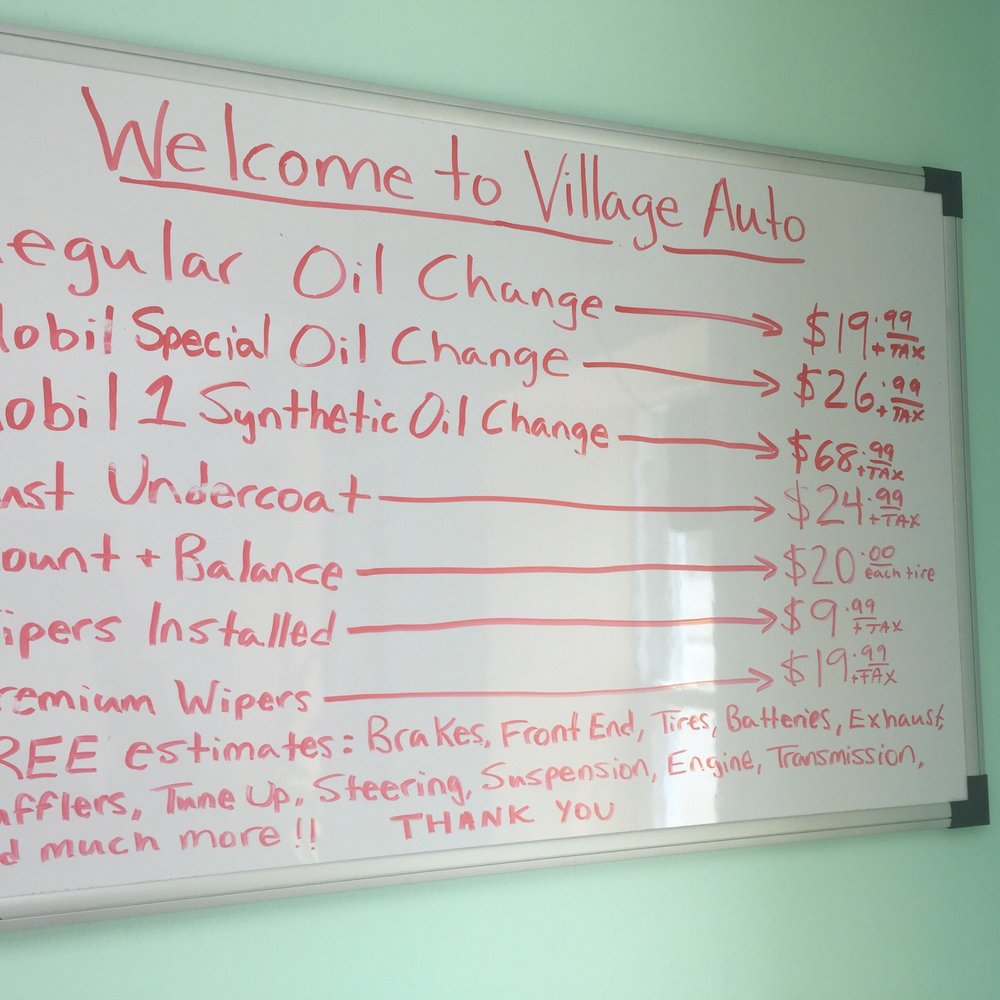 Welcome to Village Auto
egular Oil Change → $19.99 + TAX
obil Special Oil Change → $26.99 + TAX
obil 1 Synthetic Oil Change → $68.99 + TAX
ust Undercoat → $24.99 + TAX
ount + Balance → $20.00 each tire
ipers Installed → $9.99 + TAX
remium Wipers → $19.99 + TAX
REE estimates: Brakes, Front End, Tires, Batteries, Exhaust,
fflers, Tune Up, Steering, Suspension, Engine, Transmission,
d much more!! THANK YOU